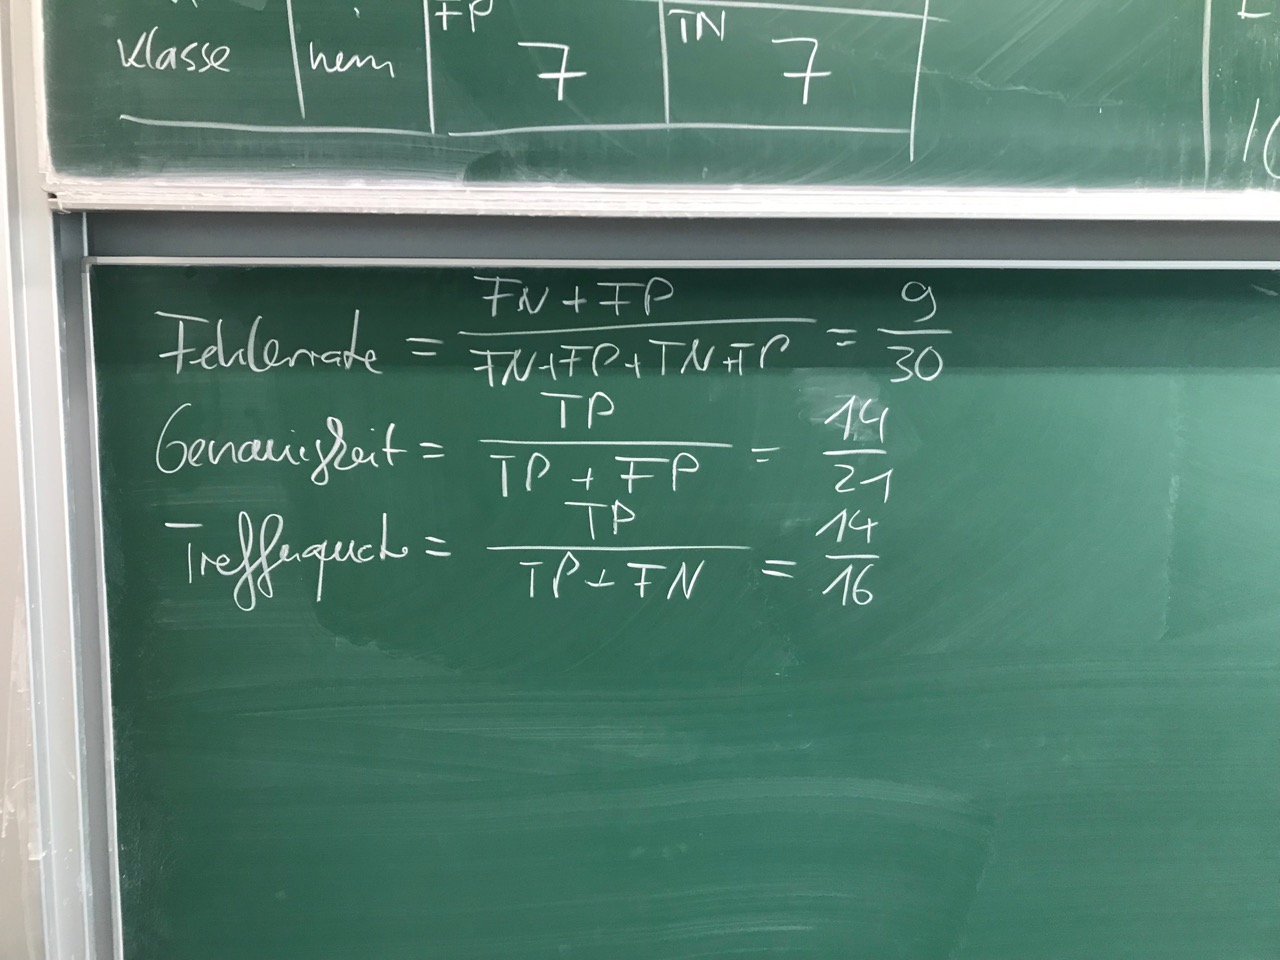 FP TN
klasse nein 7 7
10
Fehlerrate = FN + FP / FN+FP+TN+TP = 9/30
Genauigkeit = TP / TP + FP = 14/21
Trefferquote = TP / TP + FN = 14/16